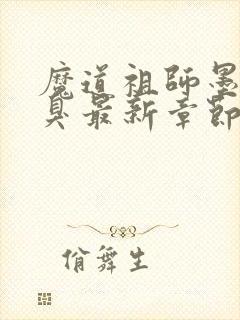 魔道祖師墨
臭最新章節
佾舞生